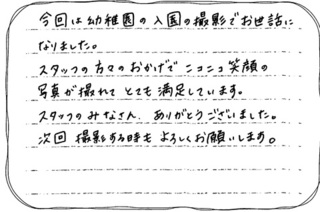 今回は幼稚園の入園の撮影でお世話に
なりました。
スタッフの方々のおかげでニコニコ笑顔の
写真が撮れてとても満足しています。
スタッフのみなさん、ありがとうございました。
次回撮影する時もよろしくお願いします。